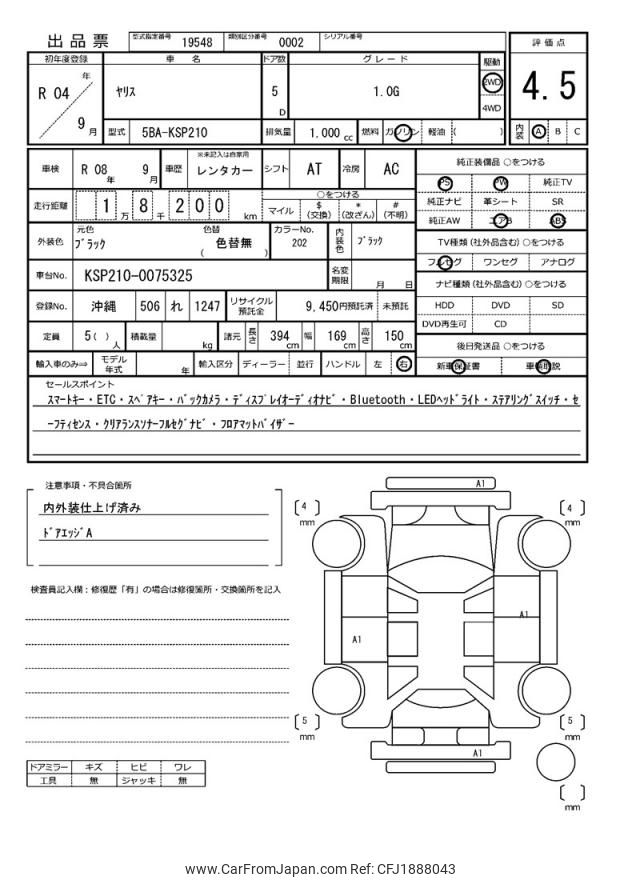 出品票 型式指定番号 19548 類別区分番号 0002 シリアル番号
評価点
4.5
内装 A B C
初年度登録 車名 ドア数 グレード 駆動
R 04 年 9 月 ヤリス 5 D 1.0G 2WD 4WD
型式 5BA-KSP210 排気量 1.000 cc 燃料 ガソリン 軽油 ( )
車検 R 08 年 9 月 車歴 ※未記入は自家用 レンタカー シフト AT 冷房 AC
走行距離 1 万 8 千 2 0 0 km ○をつける
マイル $ (交換) * (改ざん) # (不明)
外装色 元色 ブラック 色替 色替無 ( ) カラーNo. 202 内装色 ブラック
車台No. KSP210-0075325 名変期限 月 日
登録No. 沖縄 506 れ 1247 リサイクル預託金 9,450円預託済 未預託
定員 5( ) 人 積載量 kg 諸元 長さ 394 cm 幅 169 cm 高さ 150 cm
輸入車のみ⇒ モデル年式 年 輸入区分 ディーラー ・ 並行 ハンドル 左 右
純正装備品 ○をつける
PS PW 純正TV
純正ナビ 革シート SR
純正AW エアB ABS
TV種類(社外品含む)○をつける
フルセグ ワンセグ アナログ
ナビ種類(社外品含む)○をつける
HDD DVD SD
DVD再生可 CD
後日発送品 ○をつける
新車保証書 車輌取説
セールスポイント
スマートキー・ETC・スペアキー・バックカメラ・ディスプレイオーディオナビ・Bluetooth・LEDヘッドライト・ステアリングスイッチ・セ
ーフティセンス・クリアランスソナーフルセグナビ・フロアマットバイザー
注意事項・不具合箇所
内外装仕上げ済み
ドアエッジA
検査員記入欄:修復歴「有」の場合は修復箇所・交換箇所を記入
A1
4 mm
4 mm
A1
A1
5 mm
5 mm
A1
mm
ドアミラー キズ ヒビ ワレ
工具 無 ジャッキ 無
www.CarFromJapan.com Ref: CFJ1888043